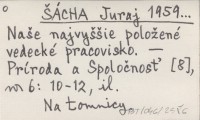 ŠÁCHA Juraj 1959...
Naše najvyššie položené
vedecké pracovisko. —
Príroda a Spoločnosť [8],
№ 6: 10-12, il.
Na tomnicy